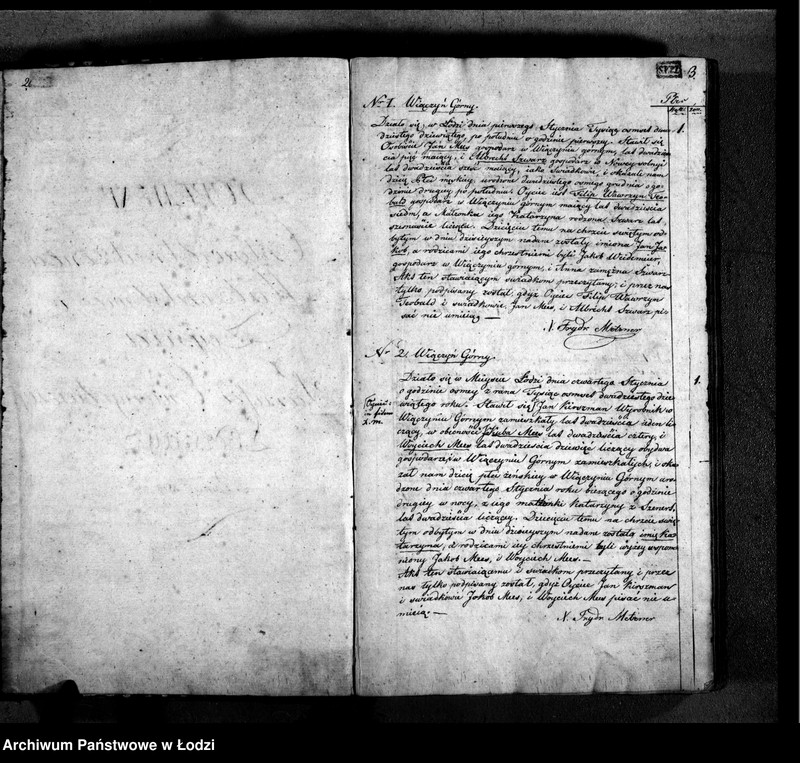 2
3
Płeć
Nr 1. Wiączyń Górny.
Działo się w Łodzi dnia pierwszego Stycznia Tysiąc osmset dwu
dziestego dziewiątego, po południu o godzinie pierwszey. Stawił się
Osobiście Jan Mees gospodarz w Wiączyniu górnym, lat dwadzie
ścia pięć maiący, i Albrecht Szwarz gospodarz w Nowey
lat dwadzieścia sześć maiący, iako Swiadkowie, i okazali nam
dziecię płci męskiey, urodzone dwudziestego osmego grudnia o go
dzinie drugiey po południu. Oyciec iest Filip Wawrzyn Ser
bald gospodarz w Wiączyniu Górnym maiący lat dwadzieścia
siedm, a Matronka iego Katarzyna rodzona Szwarz lat
licząca. Dziecięciu temu na chrzcie świętym od
bytym w dniu dzisieyszym nadane zostały imiona Jan Ja
kob, a rodzicami iego chrzestniemi byli Jakob
gospodarz w Wiączyniu górnym, i Anna zamężna Szwarz
Akt ten stawaiącym swiadkom przeczytany, i przez nas
tylko podpisany został, gdyż Oyciec Filip Wawrzyn
Serbald i swiadkowie Jan Mees, i Albrecht Szwarz pi
sać nie umieią. —
N. Frydr Metzner
1.
Nr 2. Wiączyń Górny.
Działo się w Mieyscie Łodzi dnia czwartego Stycznia
o godzinie osmey z rana Tysiąc osmset dwudziestego dzie
wiątego roku. Stawił się Jan Kirszman Wyrobnik w
Wiączyniu Górnym zamieszkały lat dwadzieścia ieden li
czący, w obecności Jakuba Mees lat dwadzieścia cztery, i
Woyciech Mees lat dwadzieścia dziewięć liczący obydwa
gospodarze w Wiączyniu Górnym zamieszkałych, i oka
zał nam dziecię płci żeńskiey w Wiączyniu Górnym uro
dzone dnia czwartego Stycznia roku bieżącego o godzinie
drugiey w nocy, z iego małżonki Katarzyny z
lat dwadzieścia liczącey. Dziecięciu temu na chrzcie świę
tym odbytym w dniu dzisieyszym nadane zostało imię Ka
tarzyna, a rodzicami iey chrzestniemi byli wyżey wspom
niony Jakob Mees, i Woyciech Mees. —
Akt ten stawaiącemu i swiadkom przeczytany i przez
nas tylko podpisany został, gdyż Oyciec Jan Kirszman
i swiadkowie Jakob Mees, i Woyciech Mees pisać nie u
mieią. —
N. Frydr Metzner
1.
Archiwum Państwowe w Łodzi